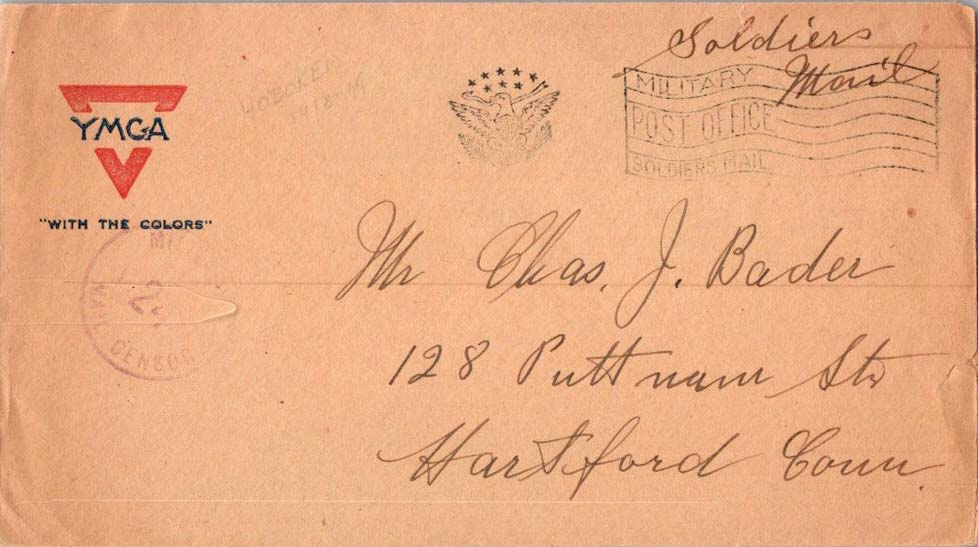 Soldiers
Mail
HOBOKEN
MILITARY
POST OFFICE
SOLDIERS MAIL
YMCA
"WITH THE COLORS"
CENSOR
Mr Chas. J. Bader
128 Puttnam Str
Hartford Conn.